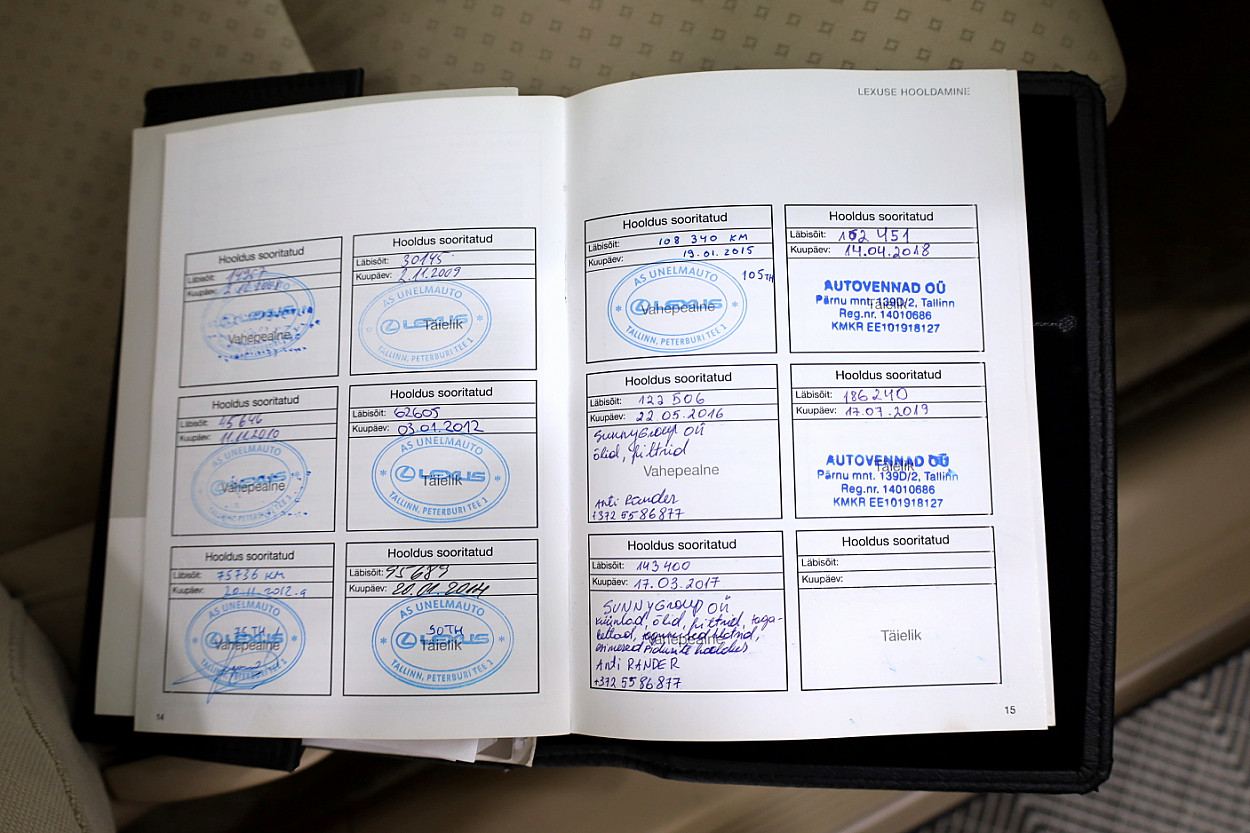 Hooldus sooritatud
Läbisõit:
Kuupäev: 2.11.2008
Vahepealne
Hooldus sooritatud
Läbisõit: 30145
Kuupäev: 2.11.2009
AS UNELMAUTO
LEXUS
Täielik
TALLINN, PETERBURI TEE 1
Hooldus sooritatud
Läbisõit: 45646
Kuupäev: 11.11.2010
AS UNELMAUTO
LEXUS
Vahepealne
TALLINN, PETERBURI TEE 1
Hooldus sooritatud
Läbisõit: 62605
Kuupäev: 03.01.2012
AS UNELMAUTO
LEXUS
Täielik
TALLINN, PETERBURI TEE 1
Hooldus sooritatud
Läbisõit: 75736 KM
Kuupäev: 20.11.2012.a
AS UNELMAUTO
75TH
LEXUS
Vahepealne
TALLINN, PETERBURI TEE 1
Hooldus sooritatud
Läbisõit: 95689
Kuupäev: 20.01.2014
AS UNELMAUTO
90TH
LEXUS
Täielik
TALLINN, PETERBURI TEE 1
14
LEXUSE HOOLDAMINE
Hooldus sooritatud
Läbisõit: 108 340 KM
Kuupäev: 19.01.2015
105TH
AS UNELMAUTO
LEXUS
Vahepealne
TALLINN, PETERBURI TEE 1
Hooldus sooritatud
Läbisõit: 162 451
Kuupäev: 14.04.2018
AUTOVENNAD OÜ
Täielik
Pärnu mnt. 139D/2, Tallinn
Reg.nr. 14010686
KMKR EE101918127
Hooldus sooritatud
Läbisõit: 122 506
Kuupäev: 22.05.2016
SunnyGroup OÜ
õlid, filtrid
Vahepealne
Anti Rander
+372 5586877
Hooldus sooritatud
Läbisõit: 186240
Kuupäev: 17.07.2019
AUTOVENNAD OÜ
Täielik
Pärnu mnt. 139D/2, Tallinn
Reg.nr. 14010686
KMKR EE101918127
Hooldus sooritatud
Läbisõit: 143400
Kuupäev: 17.03.2017
SUNNYGroup OÜ
küünlad, õlid, filtrid, taga-
esimesed pidurite hooldus
Vahepealne
Anti RANDER
+372 5586877
Hooldus sooritatud
Läbisõit:
Kuupäev:
Täielik
15